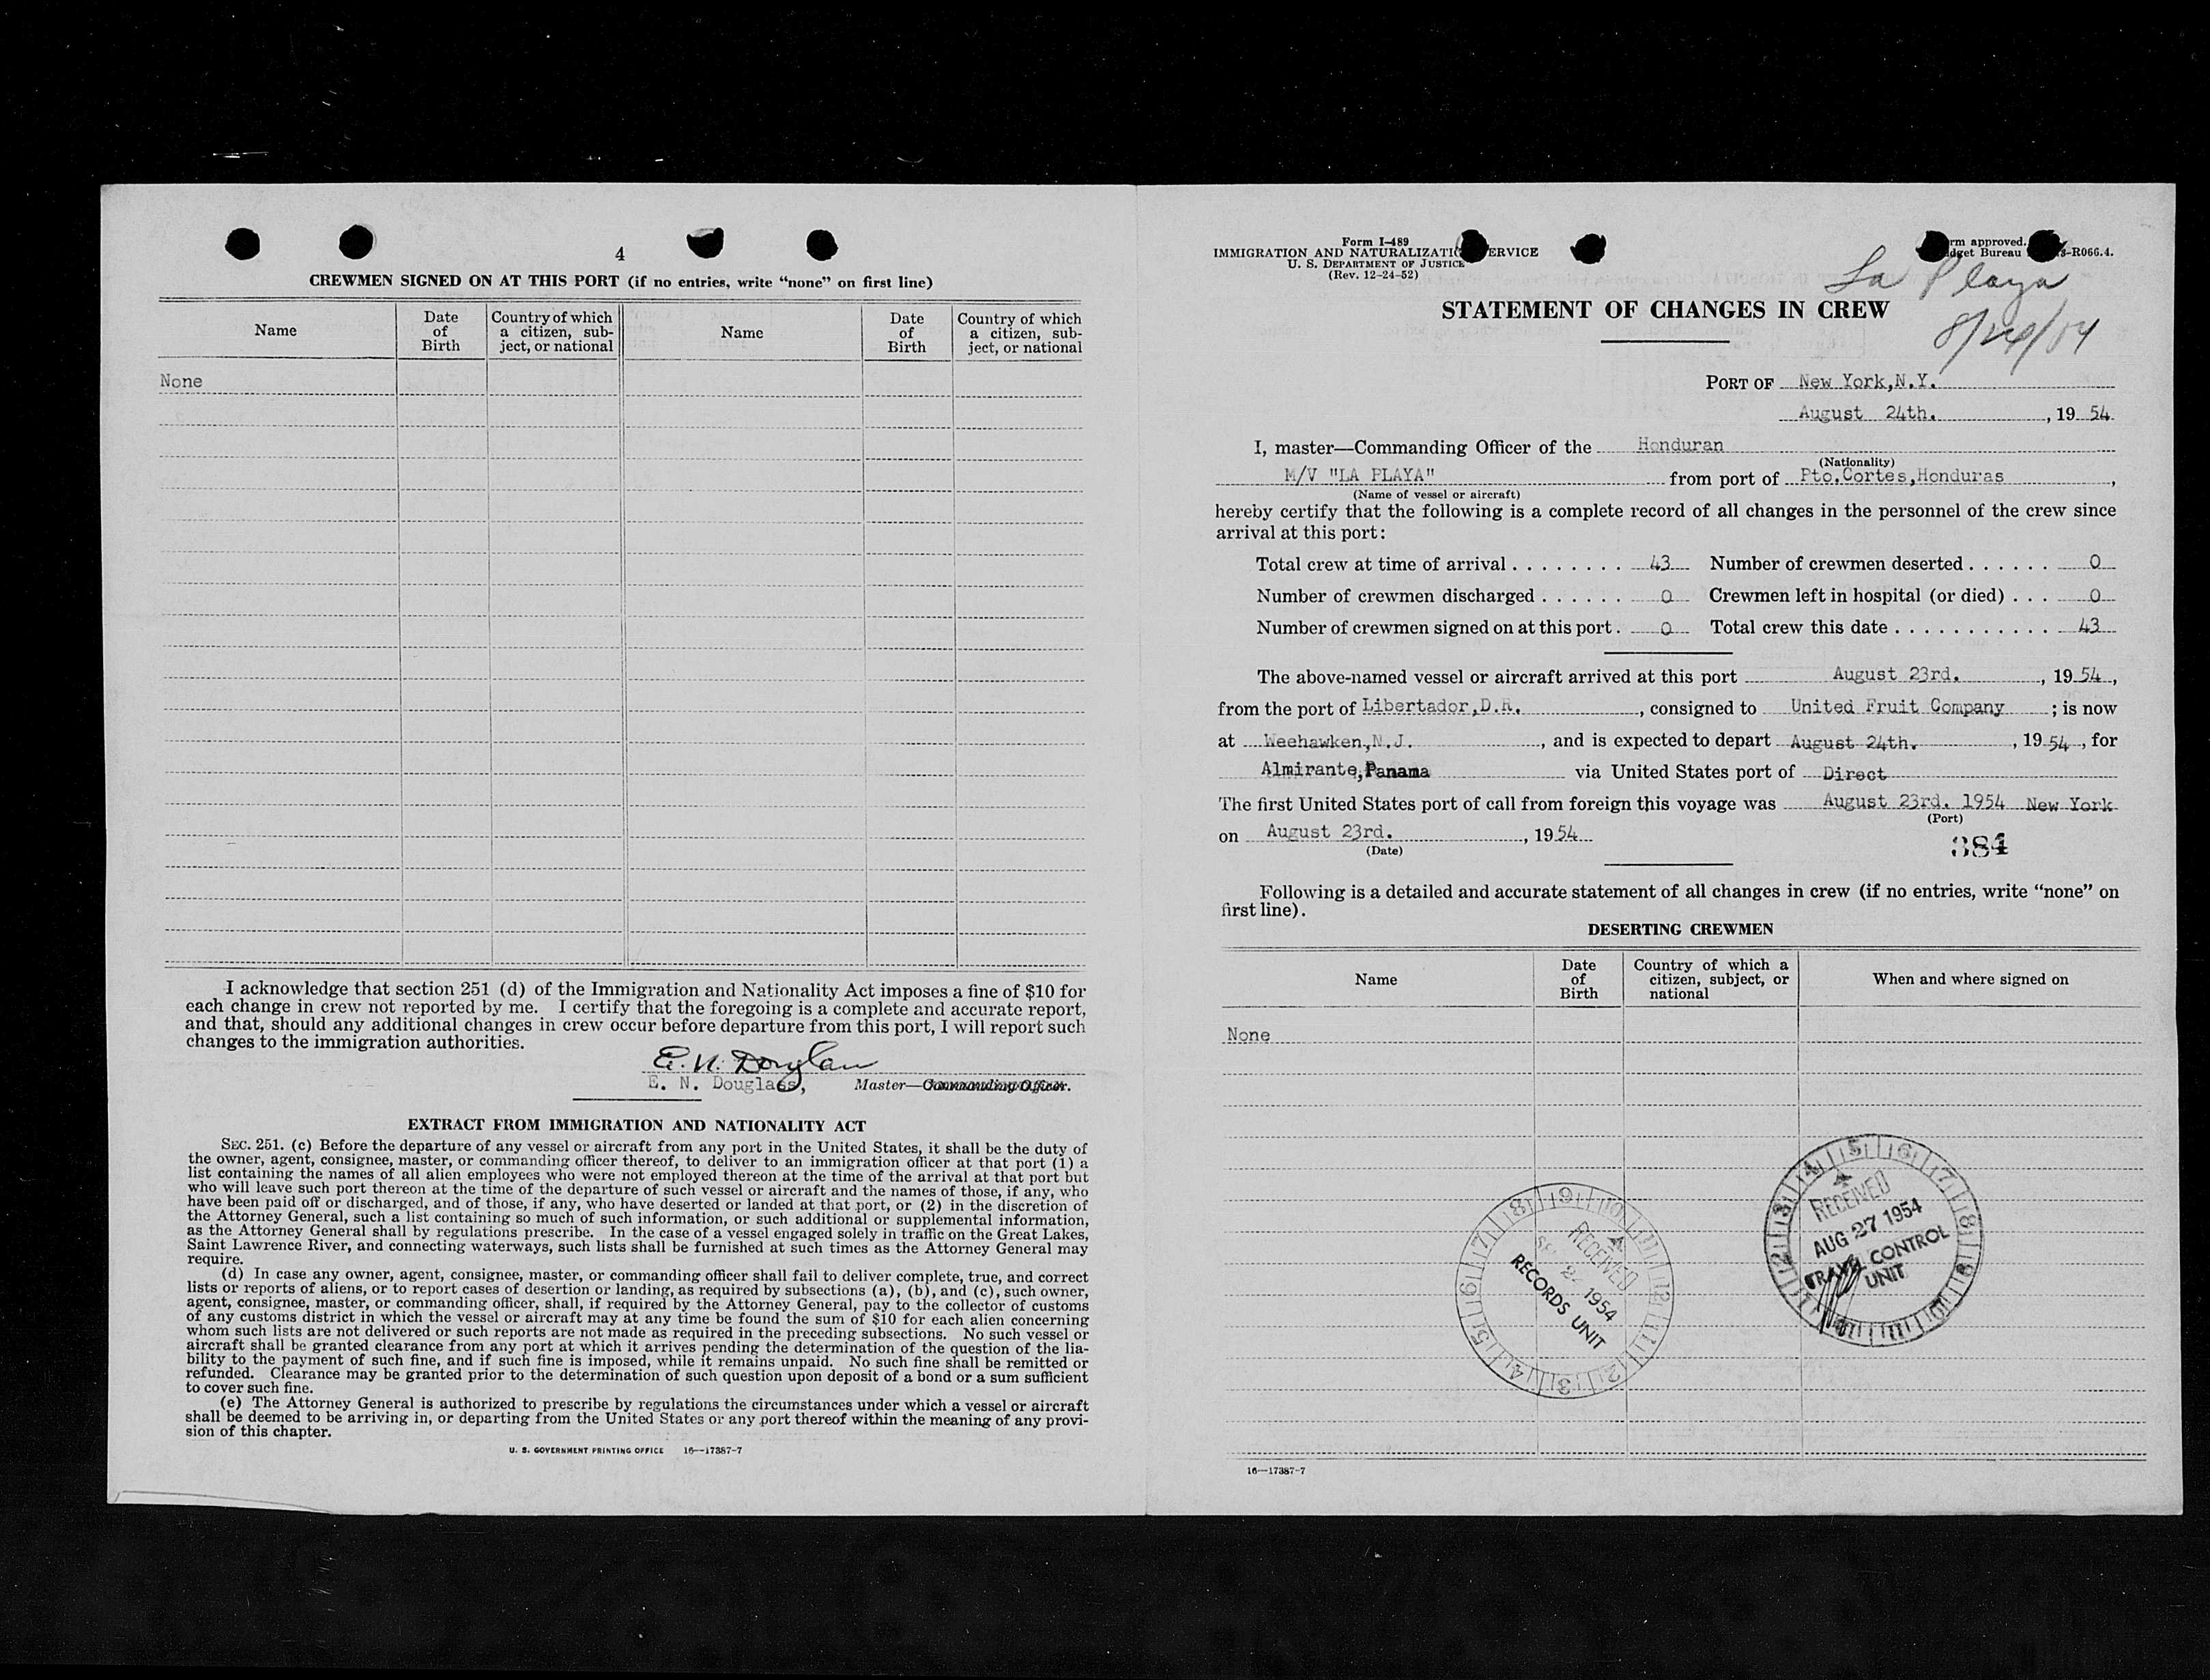 4
CREWMEN SIGNED ON AT THIS PORT (if no entries, write “none” on first line)
Name
Date of Birth
Country of which a citizen, sub-ject, or national
Name
Date of Birth
Country of which a citizen, sub-ject, or national
None
I acknowledge that section 251 (d) of the Immigration and Nationality Act imposes a fine of $10 for
each change in crew not reported by me. I certify that the foregoing is a complete and accurate report,
and that, should any additional changes in crew occur before departure from this port, I will report such
changes to the immigration authorities.
E. N. Douglass
E. N. Douglass, Master—Commanding Officer.
EXTRACT FROM IMMIGRATION AND NATIONALITY ACT
SEC. 251. (c) Before the departure of any vessel or aircraft from any port in the United States, it shall be the duty of
the owner, agent, consignee, master, or commanding officer thereof, to deliver to an immigration officer at that port (1) a
list containing the names of all alien employees who were not employed thereon at the time of the arrival at that port but
who will leave such port thereon at the time of the departure of such vessel or aircraft and the names of those, if any, who
have been paid off or discharged, and of those, if any, who have deserted or landed at that port, or (2) in the discretion of
the Attorney General, such a list containing so much of such information, or such additional or supplemental information,
as the Attorney General shall by regulations prescribe. In the case of a vessel engaged solely in traffic on the Great Lakes,
Saint Lawrence River, and connecting waterways, such lists shall be furnished at such times as the Attorney General may
require.
(d) In case any owner, agent, consignee, master, or commanding officer shall fail to deliver complete, true, and correct
lists or reports of aliens, or to report cases of desertion or landing, as required by subsections (a), (b), and (c), such owner,
agent, consignee, master, or commanding officer, shall, if required by the Attorney General, pay to the collector of customs
of any customs district in which the vessel or aircraft may at any time be found the sum of $10 for each alien concerning
whom such lists are not delivered or such reports are not made as required in the preceding subsections. No such vessel or
aircraft shall be granted clearance from any port at which it arrives pending the determination of the question of the lia-
bility to the payment of such fine, and if such fine is imposed, while it remains unpaid. No such fine shall be remitted or
refunded. Clearance may be granted prior to the determination of such question upon deposit of a bond or a sum sufficient
to cover such fine.
(e) The Attorney General is authorized to prescribe by regulations the circumstances under which a vessel or aircraft
shall be deemed to be arriving in, or departing from the United States or any port thereof within the meaning of any provi-
sion of this chapter.
U. S. GOVERNMENT PRINTING OFFICE 16—17387-7
Form I-489
IMMIGRATION AND NATURALIZATI ERVICE
U. S. DEPARTMENT OF JUSTICE
(Rev. 12-24-52)
rm approved.
dget Bureau 3-R066.4.
La Playa
8/24/54
STATEMENT OF CHANGES IN CREW
PORT OF New York,N.Y.
August 24th. , 19 54
I, master—Commanding Officer of the Honduran
(Nationality)
M/V "LA PLAYA" from port of Pto.Cortes,Honduras ,
(Name of vessel or aircraft)
hereby certify that the following is a complete record of all changes in the personnel of the crew since
arrival at this port:
Total crew at time of arrival . . . . . . . . 43 Number of crewmen deserted . . . . . . 0
Number of crewmen discharged . . . . . . 0 Crewmen left in hospital (or died) . . . 0
Number of crewmen signed on at this port . 0 Total crew this date . . . . . . . . . . . . 43
The above-named vessel or aircraft arrived at this port August 23rd. , 19 54 ,
from the port of Libertador,D.R. , consigned to United Fruit Company ; is now
at Weehawken,N.J. , and is expected to depart August 24th. , 19 54 , for
Almirante,Panama via United States port of Direct
The first United States port of call from foreign this voyage was August 23rd. 1954 New York
(Port)
on August 23rd. , 19 54
(Date)
384
Following is a detailed and accurate statement of all changes in crew (if no entries, write “none” on
first line).
DESERTING CREWMEN
Name
Date of Birth
Country of which a citizen, subject, or national
When and where signed on
None
RECEIVED
AUG 27 1954
TRAVEL CONTROL
UNIT
RECEIVED
1954
RECORDS UNIT
16—17387-7